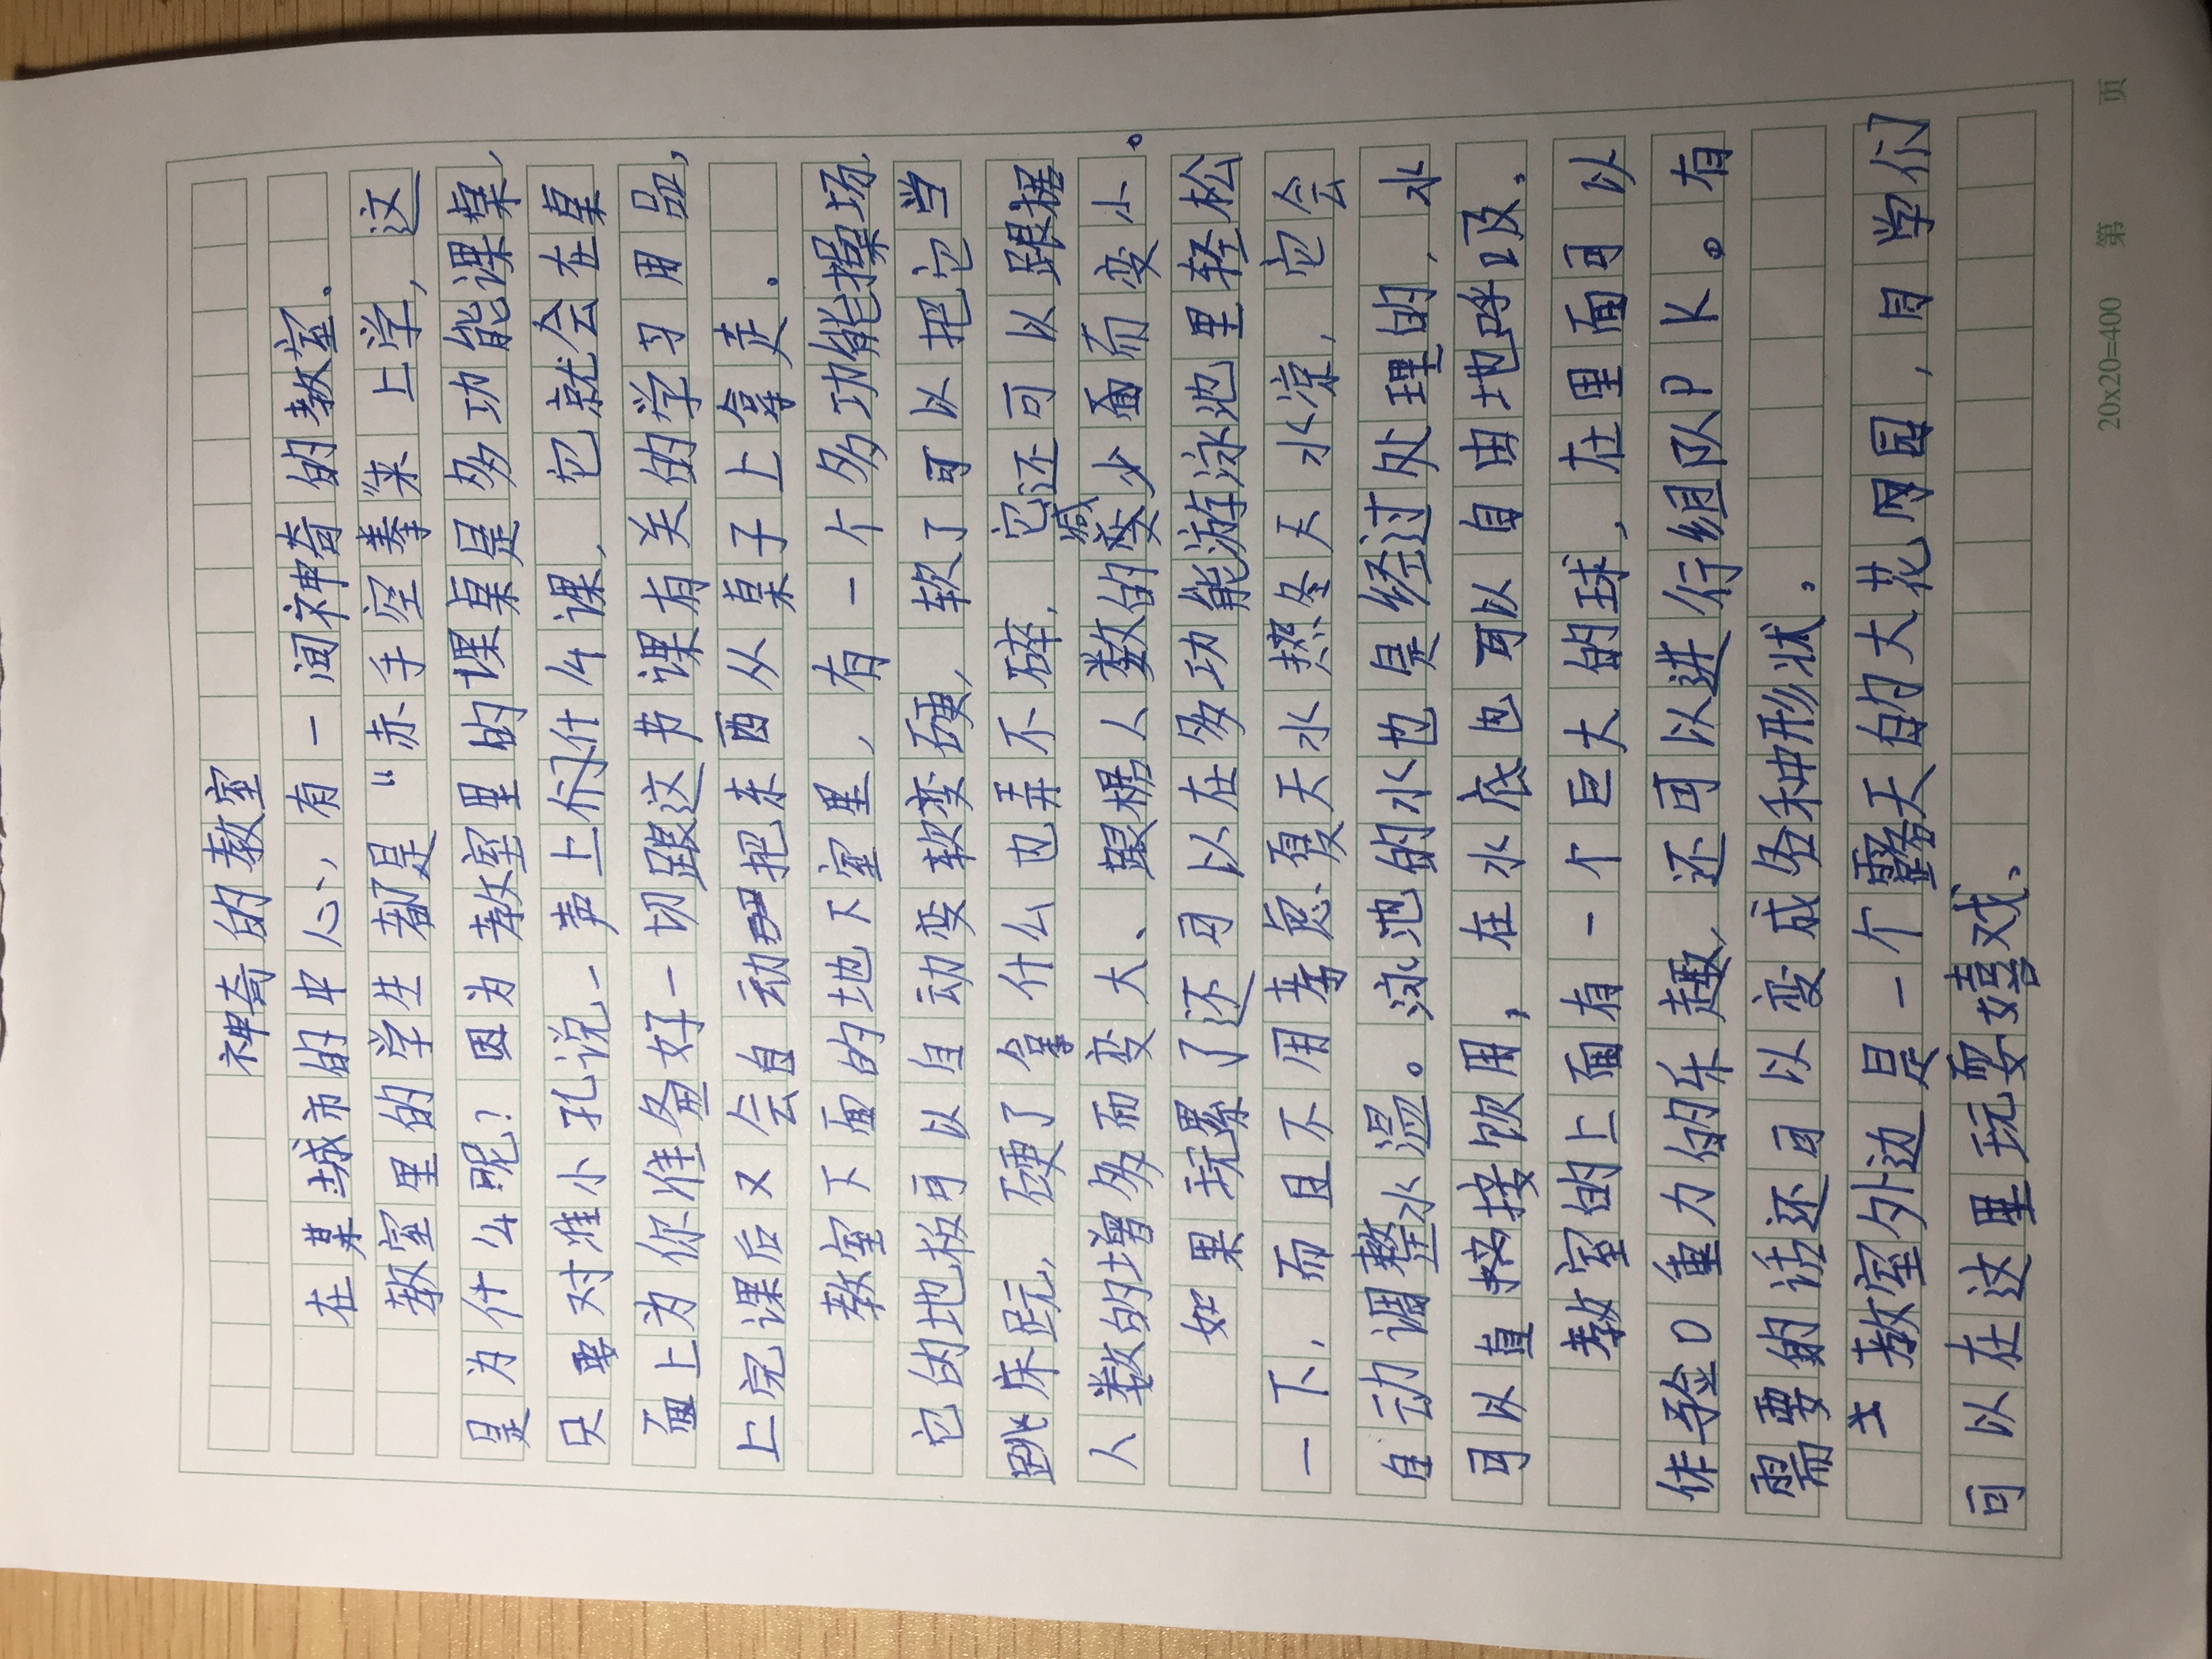 神奇的教室
在某城市的中心，有一间神奇的教室。
教室里的学生都是“赤手空拳”来上学，这
是为什么呢？因为教室里的课桌是多功能课桌，
只要对准小孔说一声上们什么课，它就会在桌
面上为你准备好一切跟这节课有关的学习用品，
上完课后又会自动把东西从桌子上拿走。
教室下面的地下室里，有一个多功能操场，
它的地板可以自动变软变硬，软了可以把它当
跳床玩，硬了拿什么也弄不碎，它还可以跟据
人数的增多而变大、跟据人数的减少面而变小。
如果玩累了还可以在多功能游泳池里轻松
一下，而且不用考虑夏天水热冬天水凉，它会
自动调整水温。泳池的水也是经过处理的，水
可以直接接饮用，在水底也可以自由地呼吸。
教室的上面有一个巨大的球，在里面可以
体验0重力的乐趣，还可以进行组队PK。有
需要的话还可以变成各种形状。
教室外边是一个露天的大花园，同学们
可以在这里玩耍嬉戏。
20x20=400 第 页